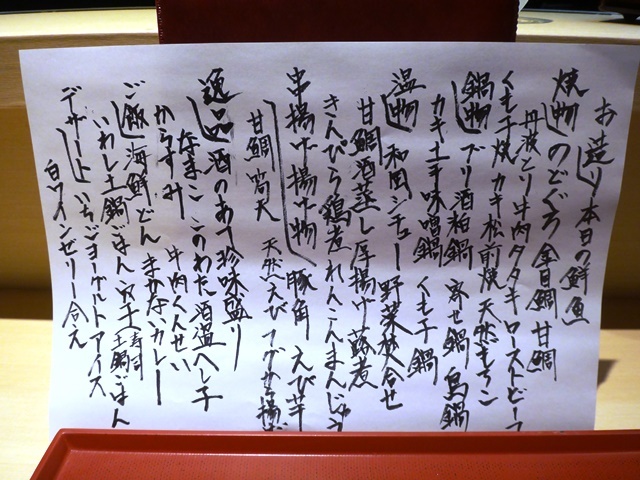 お造り 本日の鮮魚
焼物 のどぐろ 金目鯛 甘鯛
丹波とり 牛肉タタキ ローストビーフ
くも子焼 カキ松前焼 天然もろこ
鍋物 ブリ酒粕鍋 寄せ鍋 鳥鍋
カキ土手味噌鍋 くも子鍋
温物 和風シチュー 野菜炊合せ
甘鯛酒蒸し 厚揚げ 蕪煮
きんぴら 鶏煮 れんこんまんじゅう
串揚げ 揚げ物 豚角 えび芋
甘鯛 天 天然えび フグから揚げ
逸品 酒のあて 珍味盛り
なまこ このわた 酒盗 へしこ
からすみ 牛肉くんせい
ご飯 海鮮どん まかないカレー
いわし土鍋ごはん 穴子 寿司 土鍋ごはん
デザート いちごヨーグルトアイス
白ワインゼリー合え